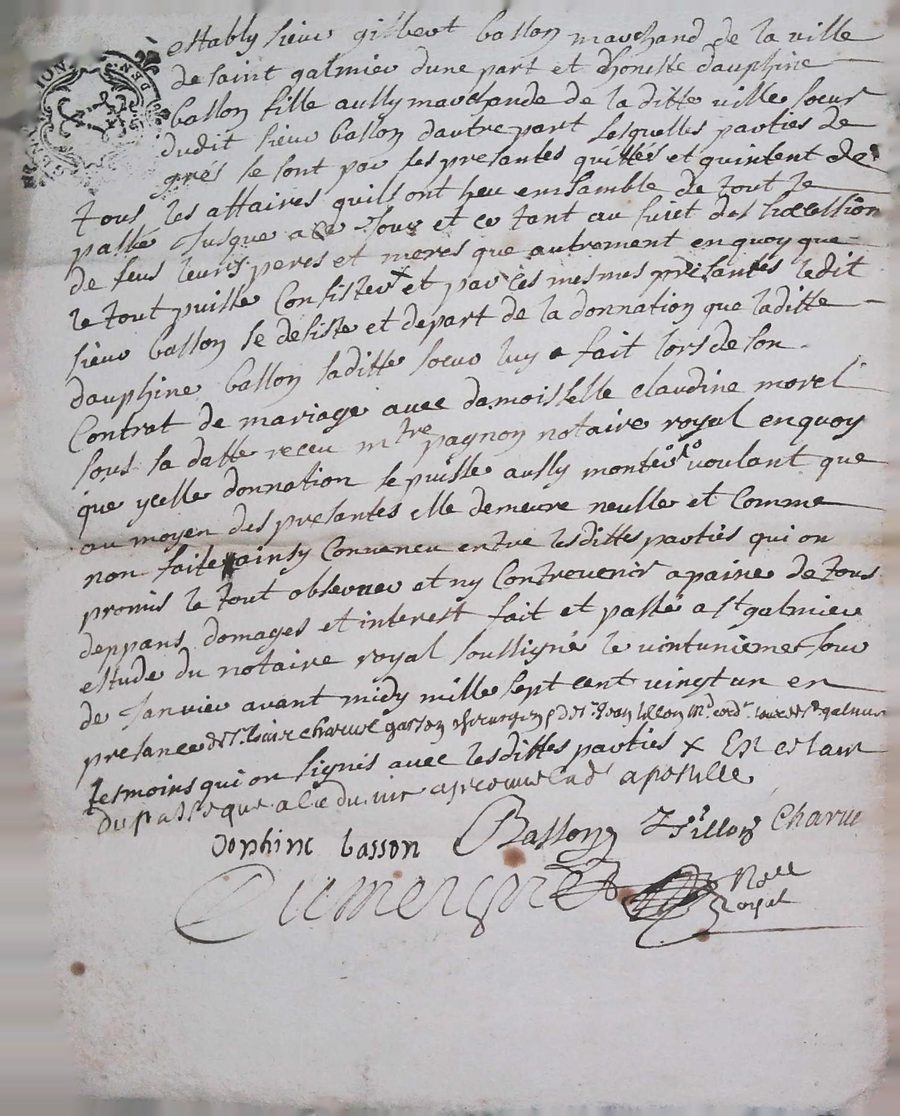 estably sieur gilbert basson marchand de la ville
de saint galmier dune part et honeste dauphine
basson fille aussy marchande de la ditte ville soeur
dudit sieur basson dautre part Lesquelles parties de
grés se sont par ses presantes quittés et quittent de
tous les affaires quils ont heu ensamble de tout le
passé Jusque a ce Jour et ce tant au sujet des succession
de feus leurs peres et meres que autrement en quoy que
le tout puisse Consister x et par ces mesmes presantes ledit
sieur basson se desiste et depart de la donnation que laditte
dauphine basson saditte soeur luy a fait lors de son
Contrat de mariage avec damoiselle claudine morel
sous sa datte receu mtre pagnon notaire royal en quoy
que ycelle donnation se puisse aussy monter voulant que
au moyen des presantes elle demeure neulle et Comme
non faite ainsy Conveneu entre lesdittes parties qui on
promis le tout observer et ny Contrevenir a paine de tous
deppans domages et interest fait et passé a st galmier
estude du notaire royal soussigné le vintunieme Jour
de Janvier avant midy mille sept cent vingt un en
presance de sr charue garson chirurgien et de sr Jean galmier
tesmoins qui on signés avec lesdittes parties x
du passé que apostille
dophine basson Basson Charue
Notre
Royal